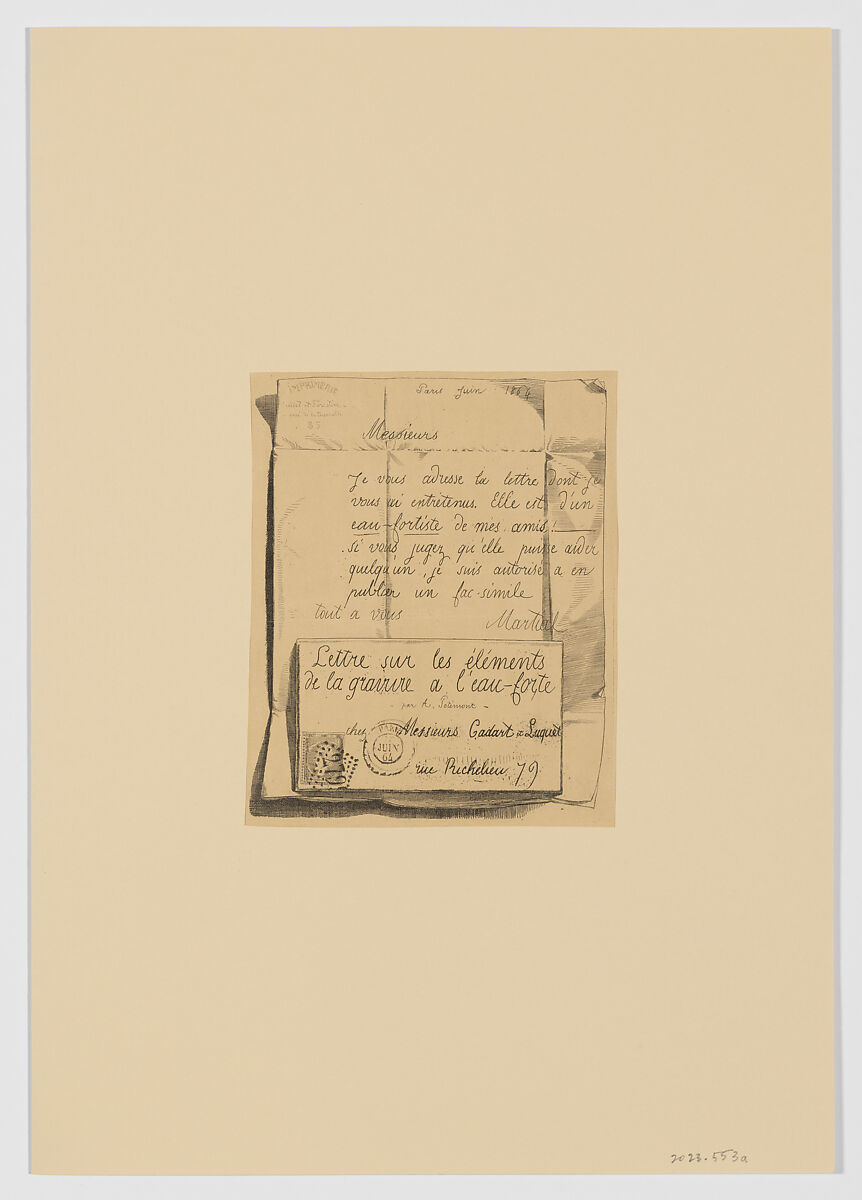 IMPRIMERIE
85
Paris Juin 1864
Messieurs
Je vous adresse la lettre dont je
vous ai entretenus. Elle est d'un
eau-fortiste de mes amis!
Si vous jugez qu'elle puisse aider
quelqu'un, je suis autorisé a en
publier un fac-simile
tout a vous Martial
Lettre sur les éléments
de la gravure a l'eau-forte
- par A. Potémont -
chez Messieurs Cadart & Luquet
PARIS
JUIN
64
rue Richelieu, 79
2023.553a